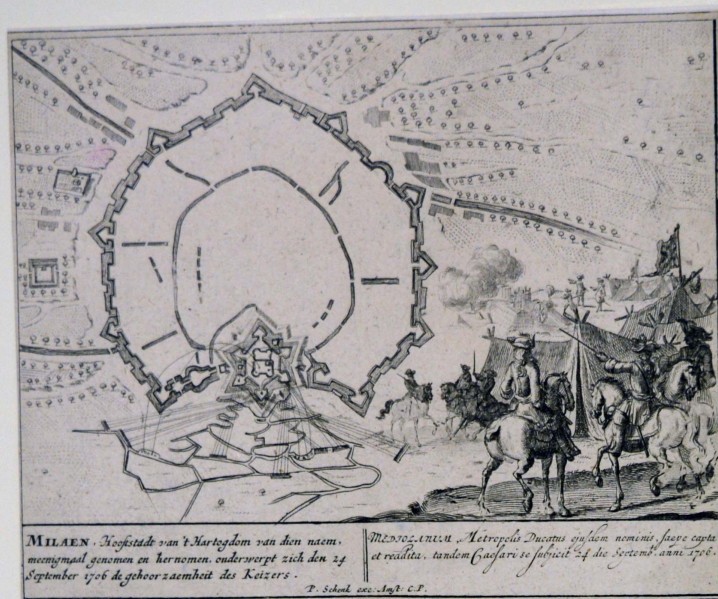 MILAEN. Hoofstadt van 't Hartogdom van dien naem,
meenigmaal genomen en hernomen, onderwerpt zich den 24
September 1706 de gehoorzaemheit des Keizers.
MEDIOLANUM, Metropolis Ducatus ejusdem nominis, saepe capta
et reddita, tandem Caesari se subjicit 24 die Septemb. anni 1706.
P. Schenk exc: Amst: C.P.